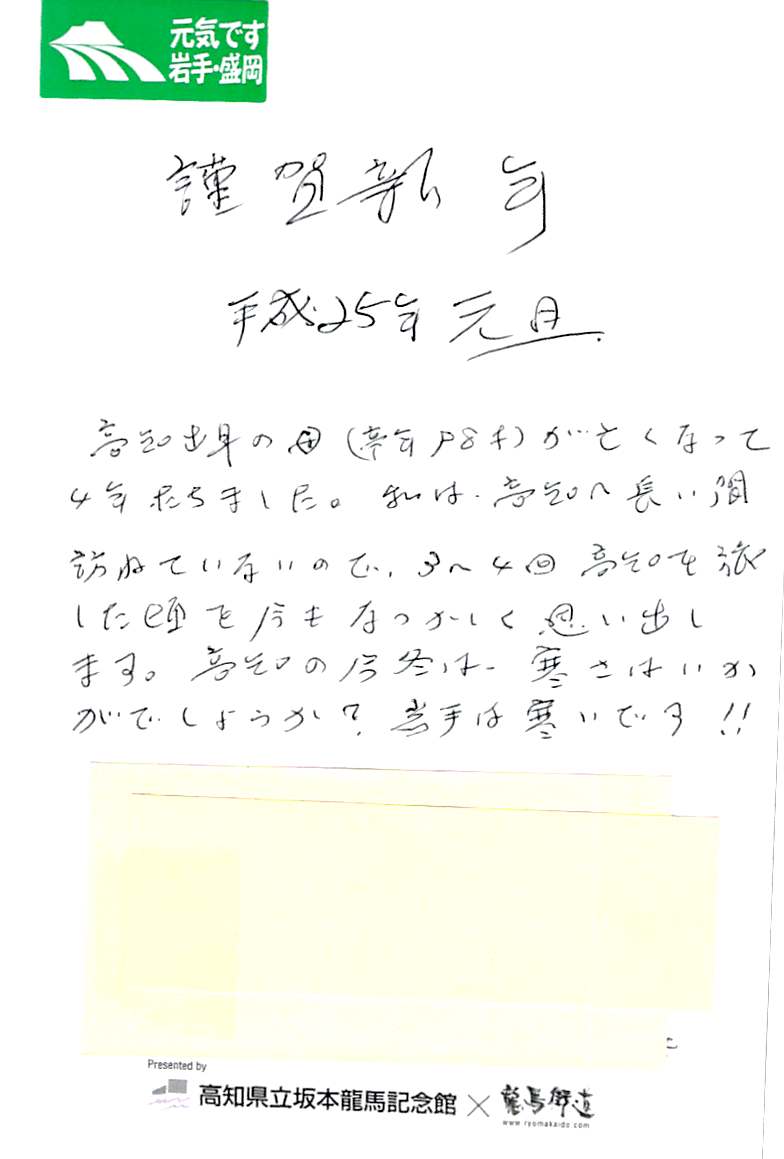 元気です
岩手・盛岡
謹賀新年
平成25年 元旦
高知出身の母(享年98才)が亡くなって
4年たちました。私は、高知へ長い間
訪ねていないので、3〜4回高知を旅
した頃を今もなつかしく思い出し
ます。高知の今冬は、寒さはいか
がでしょうか? 岩手は寒いです!!
Presented by
高知県立坂本龍馬記念館×龍馬街道
www.ryomakaido.com